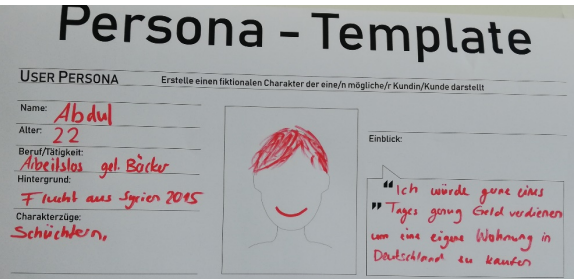 Persona - Template
USER PERSONA
Erstelle einen fiktionalen Charakter der eine/n mögliche/r Kundin/Kunde darstellt
Name: Abdul
Alter: 22
Beruf/Tätigkeit:
Arbeitslos gel. Bäcker
Hintergrund:
Flucht aus Syrien 2015
Charakterzüge:
Schüchtern,
Einblick:
"Ich würde gerne eines
" Tages genug Geld verdienen
um eine eigene Wohnung in
Deutschland zu kaufen